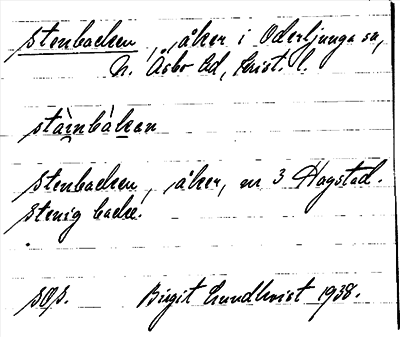 Stenbacken, åker i Oderljunga sn,
N. Åsbo hd, Krist. l.
stàinbàkan
Stenbacken, åker, nr 3 Hagstad.
Stenig backe.
SOS. Birgit Lundkvist 1938.